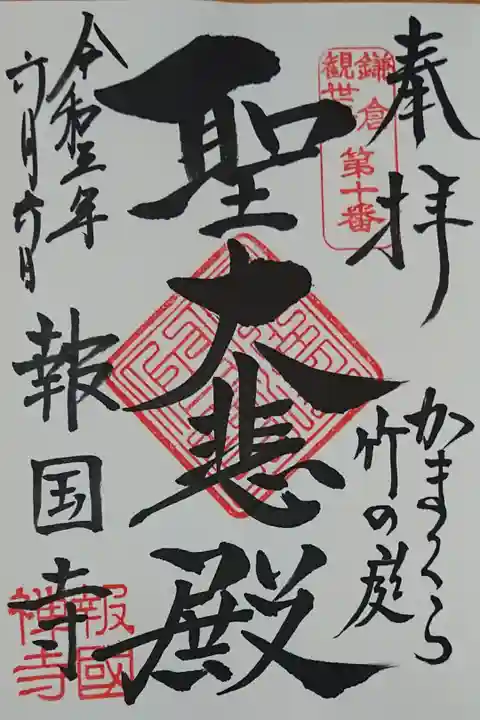 奉拝
鎌倉
観世音
第十番
かまくら
竹の庭
聖大悲殿
令和三年
六月六日
報国寺
報國
禅寺